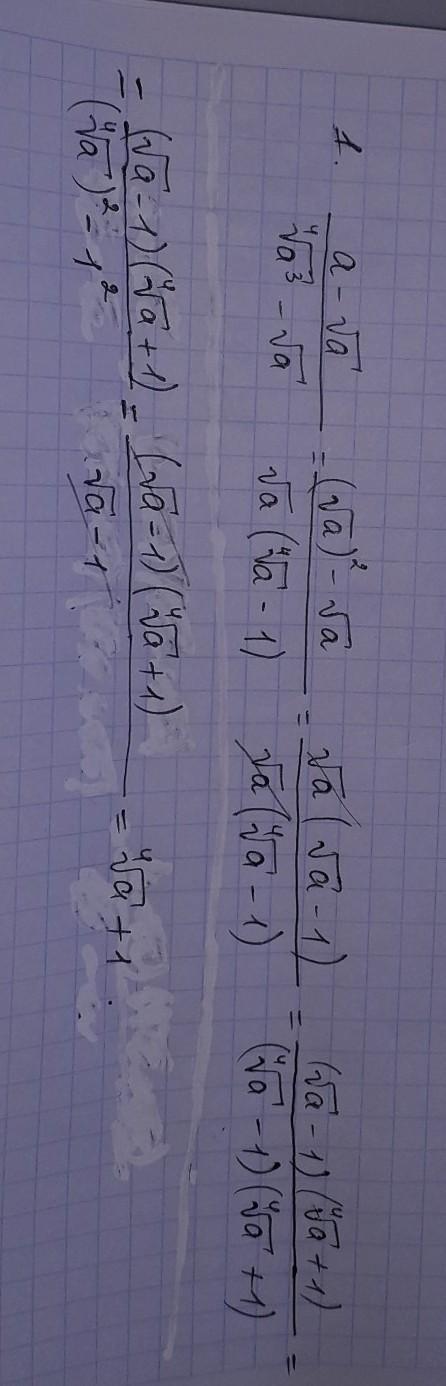 1. (a - √a)/(∜a³ - √a) = ((√a)² - √a)/(√a(∜a - 1)) = (√a(√a - 1))/(√a(∜a - 1)) = ((√a - 1)(∜a + 1))/((∜a - 1)(∜a + 1)) =
= ((√a - 1)(∜a + 1))/((∜a)² - 1²) = ((√a - 1)(∜a + 1))/(√a - 1) = ∜a + 1